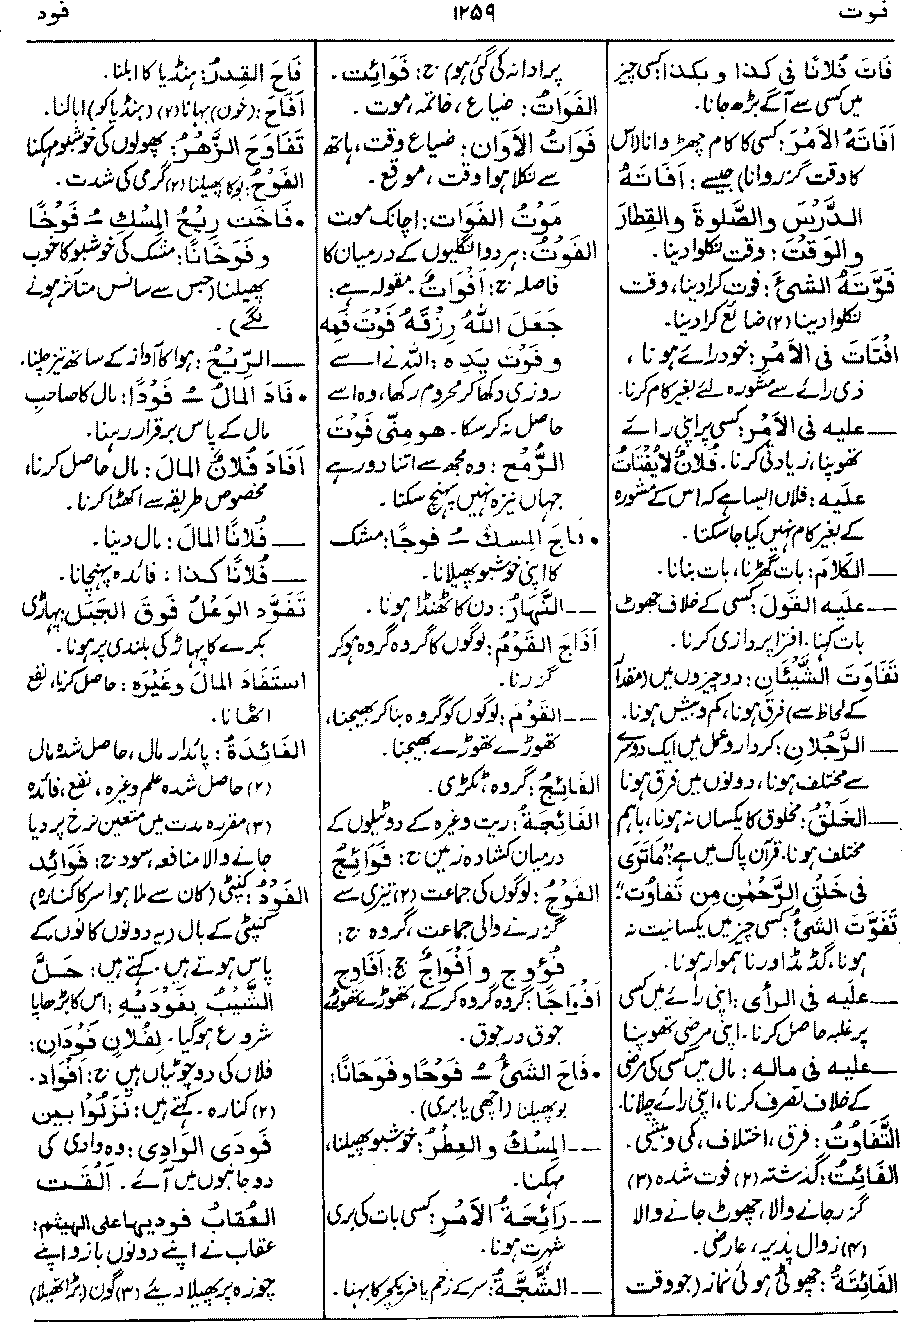 فوت
۱۲۵۹
فود
فَاتَ فُلَانًا فِی کَذَا وَ بِکَذَا: کسی چیز
میں کسی سے آگے بڑھ جانا۔
اَفَاتَهُ الاَمْرَ: کسی کا کام چھڑوانا (اس
کا وقت گزروانا) جیسے: اَفَاتَهُ
الدَّرْسَ وَالصَّلٰوةَ وَالقِطَارَ
وَالوَقْتَ: وقت نکلوا دینا۔
فَوَّتَهُ الشَّئَ: فوت کرا دینا، وقت
نکلوا دینا (۲) ضائع کرا دینا۔
افْتَاتَ فِی الاَمْرِ: خود رائے ہونا،
ذی رائے سے مشورہ لئے بغیر کام کرنا۔
— علیه فی الاَمْرِ: کسی پر اپنی رائے
تھوپنا، زیادتی کرنا۔ فُلَانٌ لَایُفْتَاتُ
عَلَیْهِ: فلاں ایسا ہے کہ اس کے مشورہ
کے بغیر کام نہیں کیا جا سکتا۔
— الکَلَامَ: بات گھڑنا، بات بنانا۔
— عَلَیْهِ القَوْلَ: کسی کے خلاف جھوٹ
بات کہنا۔ افترا پردازی کرنا۔
تَفَاوَتَ الشَّیْئَانِ: دو چیزوں میں (مقدار
کے لحاظ سے) فرق ہونا، کم و بیش ہونا۔
— الرَّجُلَانِ: کردار و عمل میں ایک دوسرے
سے مختلف ہونا، دونوں میں فرق ہونا
— الخَلْقُ: مخلوق کا یکساں نہ ہونا، باہم
مختلف ہونا۔ قرآن پاک میں ہے: ”مَا تَرٰی
فِی خَلْقِ الرَّحْمٰنِ مِن تَفَاوُتٍ“
تَفَوَّتَ الشَّئُ: کسی چیز میں یکسانیت نہ
ہونا، گڈمڈ اور ناہموار ہونا۔
— عَلَیْهِ فی الرأی: اپنی رائے میں کسی
پر غلبہ حاصل کرنا۔ اپنی مرضی تھوپنا
— علیه فی ماله: مال میں کسی کی مرضی
کے خلاف تصرف کرنا، اپنی رائے چلانا۔
التَّفَاوُتُ: فرق، اختلاف، کمی و بیشی۔
الفَائِتُ: گذشتہ (۲) فوت شدہ (۳)
گزر جانے والا، چھوٹ جانے والا
(۴) زوال پذیر، عارضی۔
الفَائِتَةُ: چھوٹی ہوئی نماز (جو وقت
پر ادا نہ کی گئی ہو) ج: فَوَائِت۔
الفَوَاتُ: ضیاع، خاتمہ، موت۔
فَوَاتُ الاَوَانِ: ضیاع وقت، ہاتھ
سے نکلا ہوا وقت، موقع۔
مَوْتُ الفَوَاتِ: اچانک موت
الفَوْتُ: ہر دو انگلیوں کے درمیان کا
فاصلہ ج: اَفْوَاتٌ۔ مقولہ ہے:
جَعَلَ اللهُ رِزْقَهُ فَوْتَ فَمِهِ
وَفَوْتَ یَدِهِ: اللہ نے اسے
روزی دکھا کر محروم رکھا، وہ اسے
حاصل نہ کر سکا۔ هو مِنّی فَوْتَ
الرُّمْحِ: وہ مجھ سے اتنا دور ہے
جہاں نیزہ نہیں پہنچ سکتا۔
• فَاجَ المِسْكُ ـُ فَوْجًا: مشک
کا اپنی خوشبو پھیلانا۔
— النَّهَارُ: دن کا ٹھنڈا ہونا۔
اَفَاجَ القَوْمُ: لوگوں کا گروہ گروہ ہو کر
گزرنا۔
— القَوْمَ: لوگوں کو گروہ بنا کر بھیجنا،
تھوڑے تھوڑے بھیجنا۔
الفَائِجُ: گروہ، ٹکڑی۔
الفَائِجَةُ: ریت وغیرہ کے دو ٹیلوں کے
درمیان کشادہ زمین ج: فَوَائِجُ
الفَوْجُ: لوگوں کی جماعت (۲) تیزی سے
گزرنے والی جماعت، گروہ ج:
فُؤُوج و اَفْوَاجٌ جج: اَفَاوِج
اَفْوَاجًا: گروہ گروہ کر کے، تھوڑے تھوڑے
جوق در جوق۔
• فَاحَ الشَّئُ ـُ فَوْحًا وفَوَحَانًا:
بو پھیلنا (اچھی یا بری)۔
— المِسْكُ والعِطْرُ: خوشبو پھیلنا،
مہکنا۔
— رَائِحَةُ الاَمْرِ: کسی بات کی بری
شہرت ہونا۔
— الشَّجَّةُ: سر کے زخم یا فریکچر کا بہنا۔
فَاحَ القِدْرُ: ہنڈیا کا ابلنا۔
اَفَاحَ: (خون) بہانا (۲) (ہنڈیا کو) ابالنا۔
تَفَاوَحَ الزَّهْرُ: پھولوں کی خوشبو مہکنا
الفَوْحُ: بو کا پھیلنا (۲) گرمی کی شدت۔
• فَاخَت رِیْحُ المِسْكِ ـُ فَوْخًا
وفَوَخَانًا: مشک کی خوشبو کا خوب
پھیلنا (جس سے سانس متاثر ہونے
لگے)۔
— الرِّیْحُ: ہوا کا آواز کے ساتھ تیز چلنا۔
• فَادَ المَالُ ـُ فَوْدًا: مال کا صاحب
مال کے پاس برقرار رہنا۔
اَفَادَ فُلَانٌ المَالَ: مال حاصل کرنا،
مخصوص طریقہ سے اکٹھا کرنا۔
— فُلَانًا المَالَ: مال دینا۔
— فُلَانًا کَذَا: فائدہ پہنچانا۔
تَفَوَّدَ الوَعْلُ فَوقَ الجَبَلِ: پہاڑی
بکرے کا پہاڑ کی بلندی پر ہونا۔
استَفَادَ المَالَ وغَیْرَه: حاصل کرنا، نفع
اٹھانا۔
الفَائِدَةُ: پائدار مال، حاصل شدہ مال
(۲) حاصل شدہ علم وغیرہ، نفع، فائدہ
(۳) مقررہ مدت میں متعین نرخ پر دیا
جانے والا منافعہ، سود ج: فَوَائِد
الفَوْدُ: کنپٹی (کان سے ملا ہوا سر کا کنارہ)
کنپٹی کے بال (یہ دونوں کانوں کے
پاس ہوتے ہیں۔ کہتے ہیں: حَلَّ
الشَّیْبُ بِفَوْدَیْهِ: اس کا بڑھاپا
شروع ہو گیا۔ لِفُلَانٍ فَوْدَانِ:
فلاں کی دو چوٹیاں ہیں ج: اَفْوَاد۔
(۲) کنارہ۔ کہتے ہیں: نَزَلُوْا بین
فَوْدَی الوَادِی: وہ وادی کی
دو جانبوں میں آئے۔ اَلْقَتِ
العُقَابُ فودیها علی الهیثم:
عقاب نے اپنے دونوں بازو اپنے
چوزہ پر پھیلا دیئے (۳) گون (بڑا تھیلا)